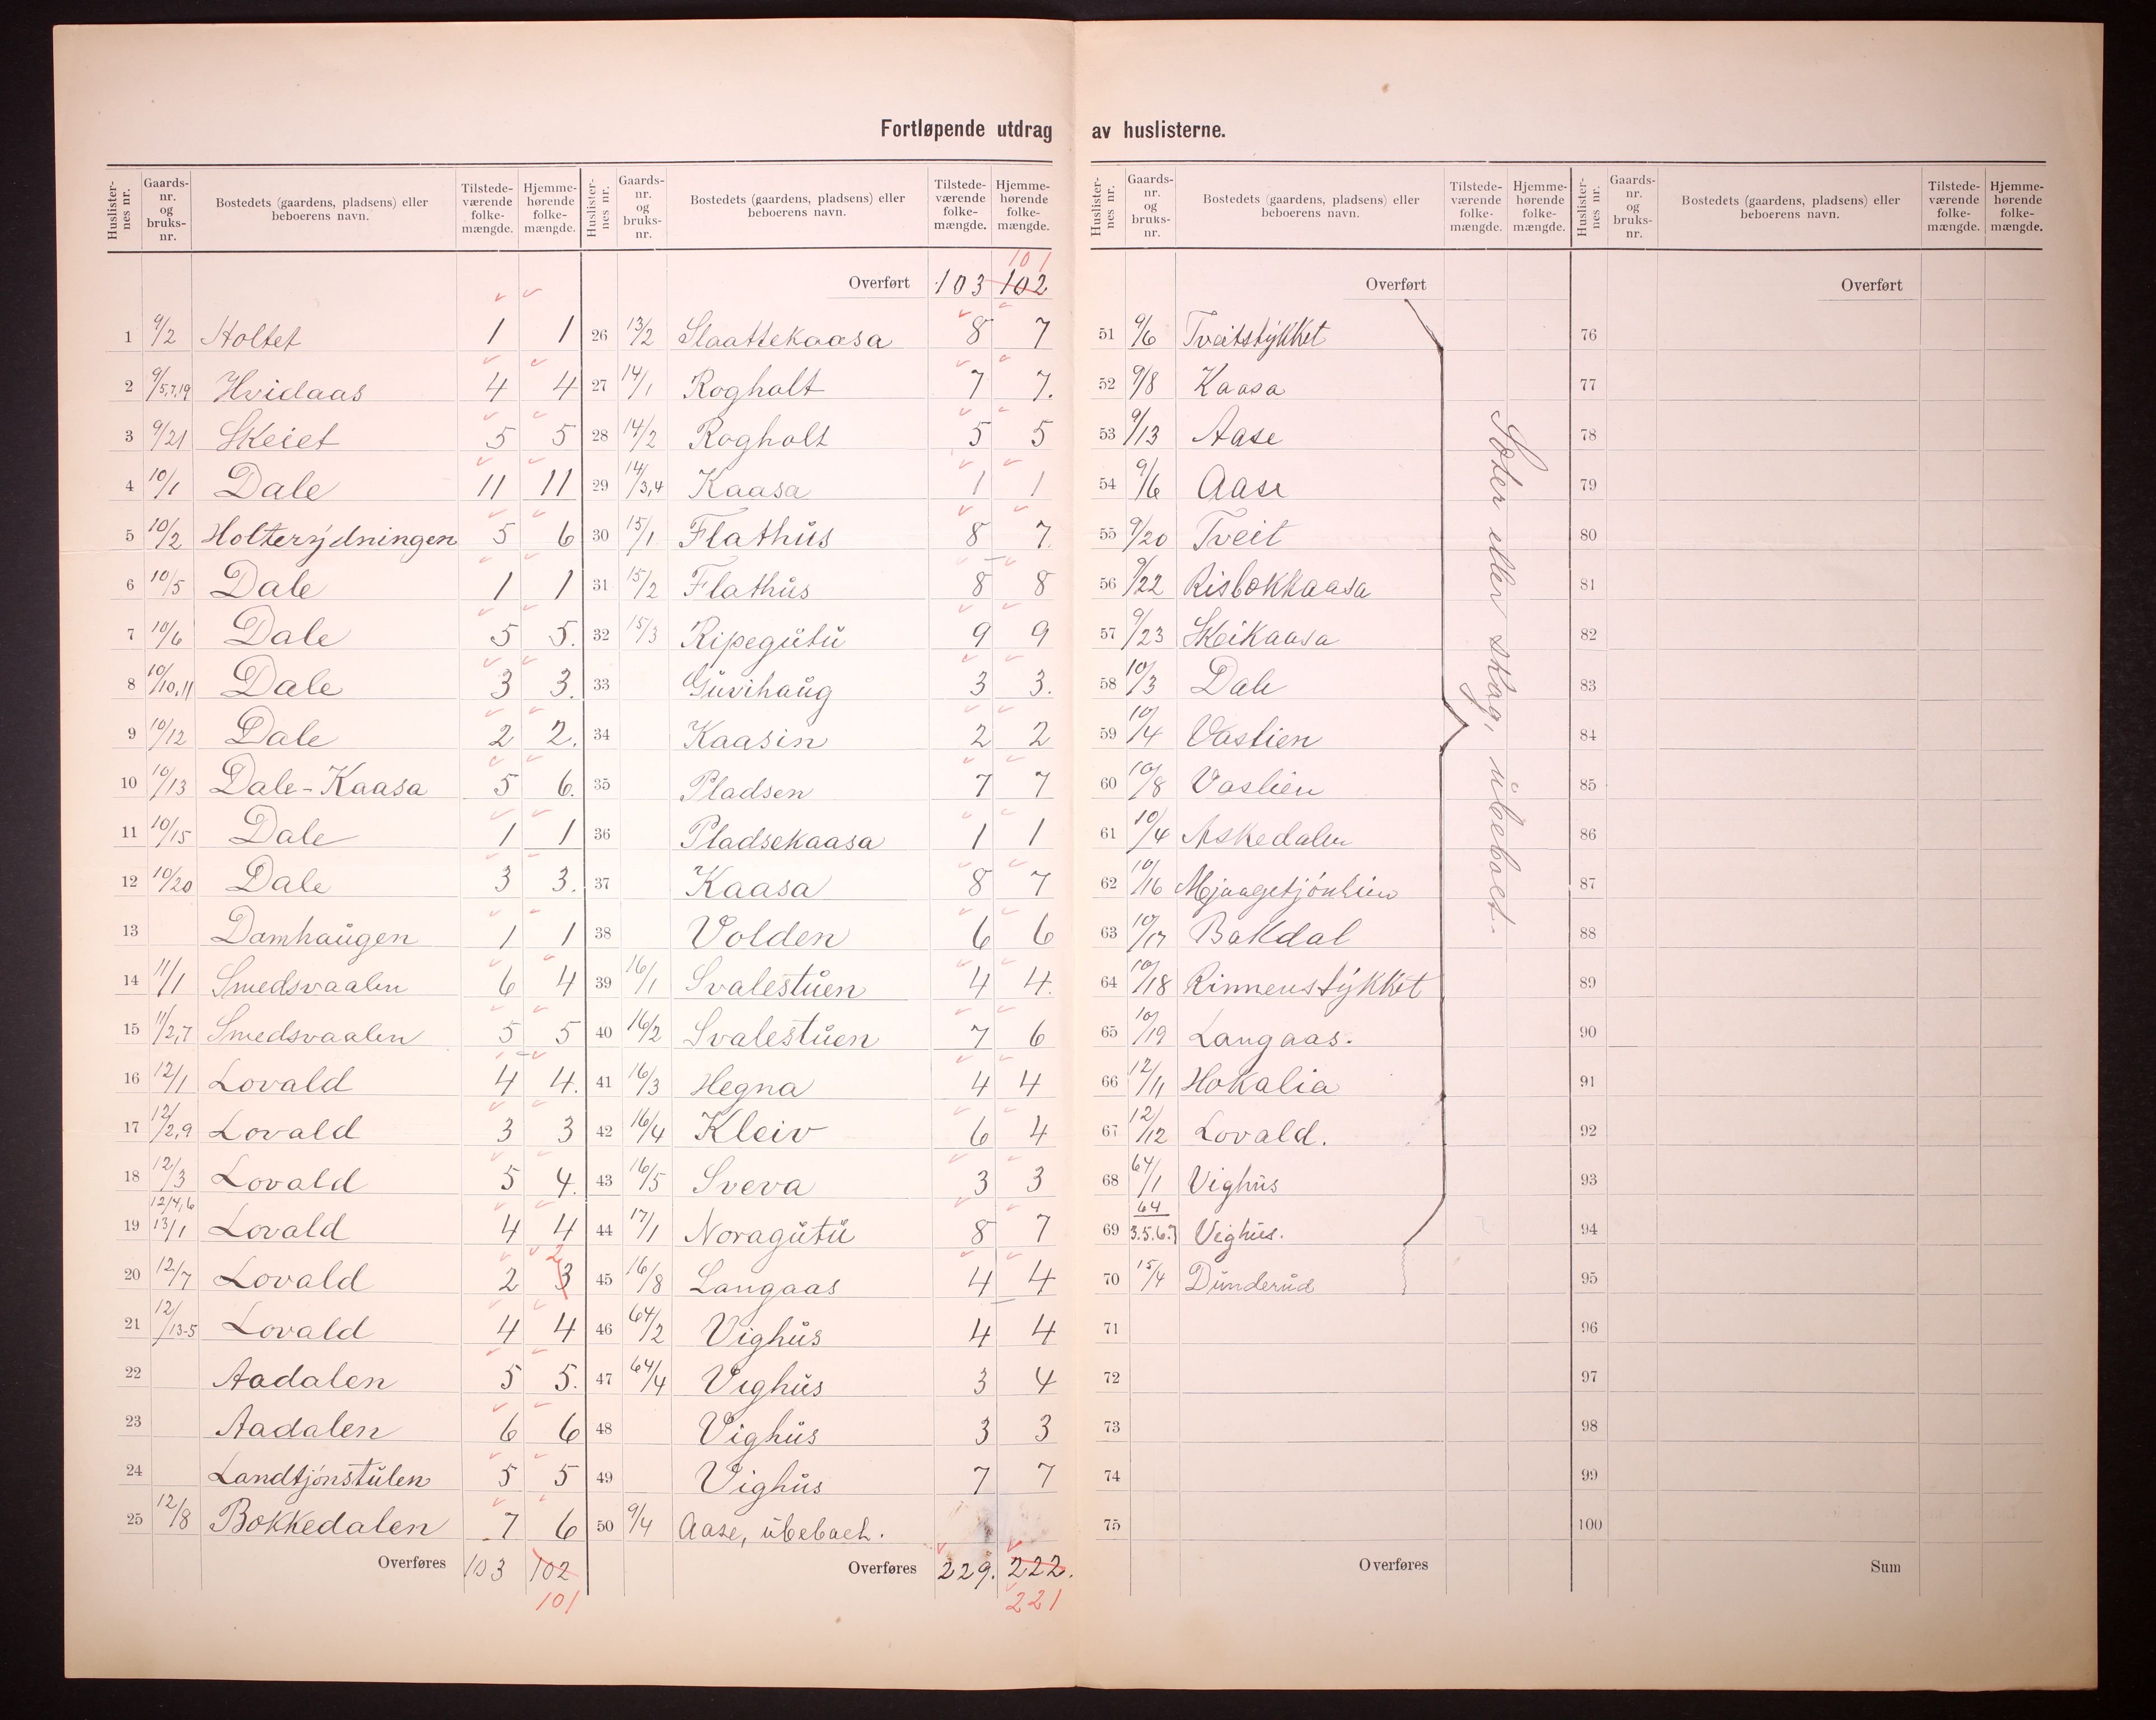 Fortløpende utdrag av huslisterne.
Huslisternes nr. Gaards-nr. og bruks-nr. Bostedets (gaardens, pladsens) eller beboerens navn. Tilstedeværende folkemængde. Hjemmehørende folkemængde.
1 9/2 Holtet 1 1
2 9/5,7,19 Hvidaas 4 4
3 9/21 Skeiet 5 5
4 10/1 Dale 11 11
5 10/2 Holterydningen 5 6
6 10/5 Dale 1 1
7 10/6 Dale 5 5.
8 10/10,11 Dale 3 3.
9 10/12 Dale 2 2.
10 10/13 Dale-Kaasa 5 6.
11 10/15 Dale 1 1
12 10/20 Dale 3 3.
13 Damhaugen 1 1
14 11/1 Smedsvaalen 6 4
15 11/2,7 Smedsvaalen 5 5
16 12/1 Lovald 4 4.
17 12/2,9 Lovald 3 3
18 12/3 Lovald 5 4.
19 12/4,6 13/1 Lovald 4 4
20 12/7 Lovald 2 3 2
21 12/13-5 Lovald 4 4
22 Aadalen 5 5.
23 Aadalen 6 6
24 Landtjønstulen 5 5
25 12/8 Bokkedalen 7 6
Overføres 103 102
101
Huslisternes nr. Gaards-nr. og bruks-nr. Bostedets (gaardens, pladsens) eller beboerens navn. Tilstedeværende folkemængde. Hjemmehørende folkemængde.
101
Overført 103 102
26 13/2 Slaattekaasa 8 7
27 14/1 Rogholt 7 7.
28 14/2 Rogholt 5 5
29 14/3,4 Kaasa 1 1
30 15/1 Flathus 8 7.
31 15/2 Flathus 8 8
32 15/3 Ripegutu 9 9
33 Guvihaug 3 3.
34 Kaasin 2 2
35 Pladsen 7 7
36 Pladsekaasa 1 1
37 Kaasa 8 7
38 Volden 6 6
39 16/1 Svalestuen 4 4.
40 16/2 Svalestuen 7 6
41 16/3 Hegna 4 4
42 16/4 Kleiv 6 4
43 16/5 Sveva 3 3
44 17/1 Noragutu 8 7
45 16/8 Langaas 4 4
46 64/2 Vighus 4 4
47 64/4 Vighus 3 4
48 Vighus 3 3
49 Vighus 7 7
50 9/4 Aase, ubeboet.
Overføres 229. 222.
221
Huslisternes nr. Gaards-nr. og bruks-nr. Bostedets (gaardens, pladsens) eller beboerens navn. Tilstedeværende folkemængde. Hjemmehørende folkemængde.
Overført
51 9/6 Tveitstykket
52 9/8 Kaasa
53 9/13 Aase
54 9/6 Aase
55 9/20 Tveit
56 9/22 Risbokkaasa
57 9/23 Skeikaasa
58 10/3 Dale
59 10/4 Vaslien
60 10/8 Vaslien
61 10/4 Askedalen
62 10/16 Mjaagetjønlien
63 10/17 Bakdal
64 10/18 Rinnenstykket
65 10/19 Langaas.
66 12/11 Hokalia
67 12/12 Lovald.
68 64/1 Vighus
69 64/3.5.6.7 Vighus.
70 15/4 Dunderud
71
72
73
74
75
Overføres
eller skog, ubeboet.
Huslisternes nr. Gaards-nr. og bruks-nr. Bostedets (gaardens, pladsens) eller beboerens navn. Tilstedeværende folkemængde. Hjemmehørende folkemængde.
Overført
76
77
78
79
80
81
82
83
84
85
86
87
88
89
90
91
92
93
94
95
96
97
98
99
100
Sum